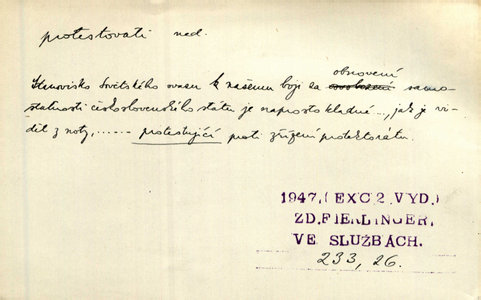 protestovati ned.
obnovení
Stanovisko Sovětského svazu k našemu boji za osvobození samo-
statnosti československého státu je naprosto kladné..., jak je vi-
dět z noty, ...... protestující proti zřízení protektorátu.
1947, (EXC 2. VYD.)
ZD. FIERLINGER,
VE SLUŽBÁCH.
233, 26.